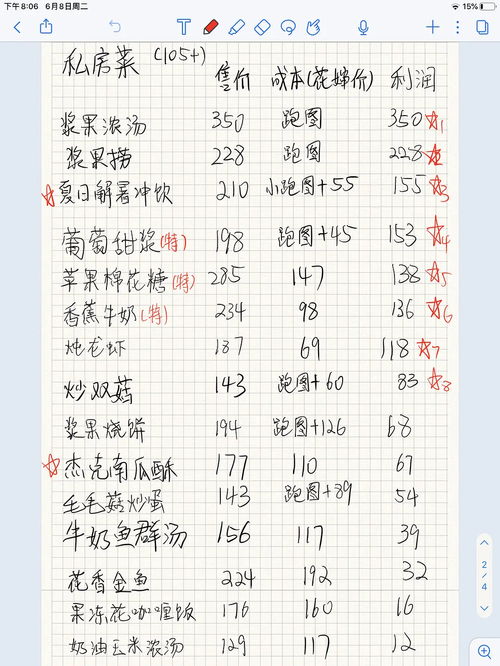 下午8:06 6月8日周二 15%
私房菜 (105+) 售价 成本(花婶价) 利润
浆果浓汤 350 跑图 350 ☆1
浆果捞 228 跑图 228 ☆2
☆夏日解暑冲饮 210 小跑图+55 155 ☆3
葡萄甜浆(特) 198 跑图+45 153 ☆4
苹果棉花糖(特) 285 147 138 ☆5
香蕉牛奶(特) 234 98 136 ☆6
炖龙虾 187 69 118 ☆7
炒双菇 143 跑图+60 83 ☆8
浆果烧饼 194 跑图+126 68
☆杰克南瓜酥 177 110 67
毛毛菇炒蛋 143 跑图+89 54
牛奶鱼群汤 156 117 39
花香金鱼 224 192 32
果冻花咖喱饭 176 160 16
奶油玉米浓汤 129 117 12
2
4